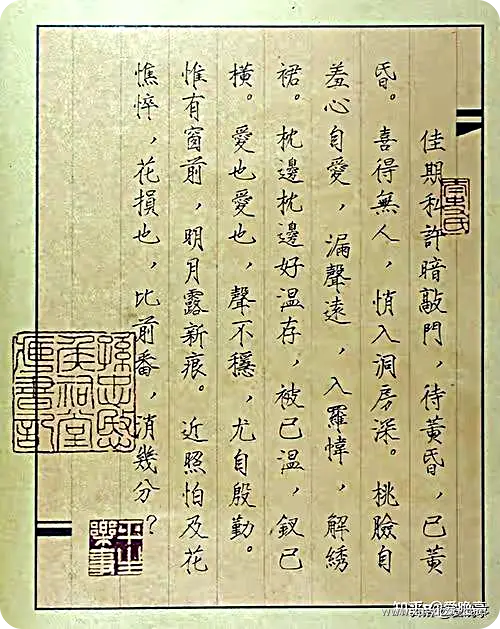 佳期私許暗敲門，待黃昏，已黃
昏。喜得無人，悄入洞房深。桃臉自
羞心自愛，漏聲遠，入羅幃，解綉
裙。枕邊枕邊好溫存，被已溫，釵已
橫。愛也愛也，聲不穩，尤自殷勤。
惟有窗前，明月露新痕。近照怕及花
憔悴，花損也，比前番，消幾分？
孫忠愍
侯祠堂
藏書記
知乎